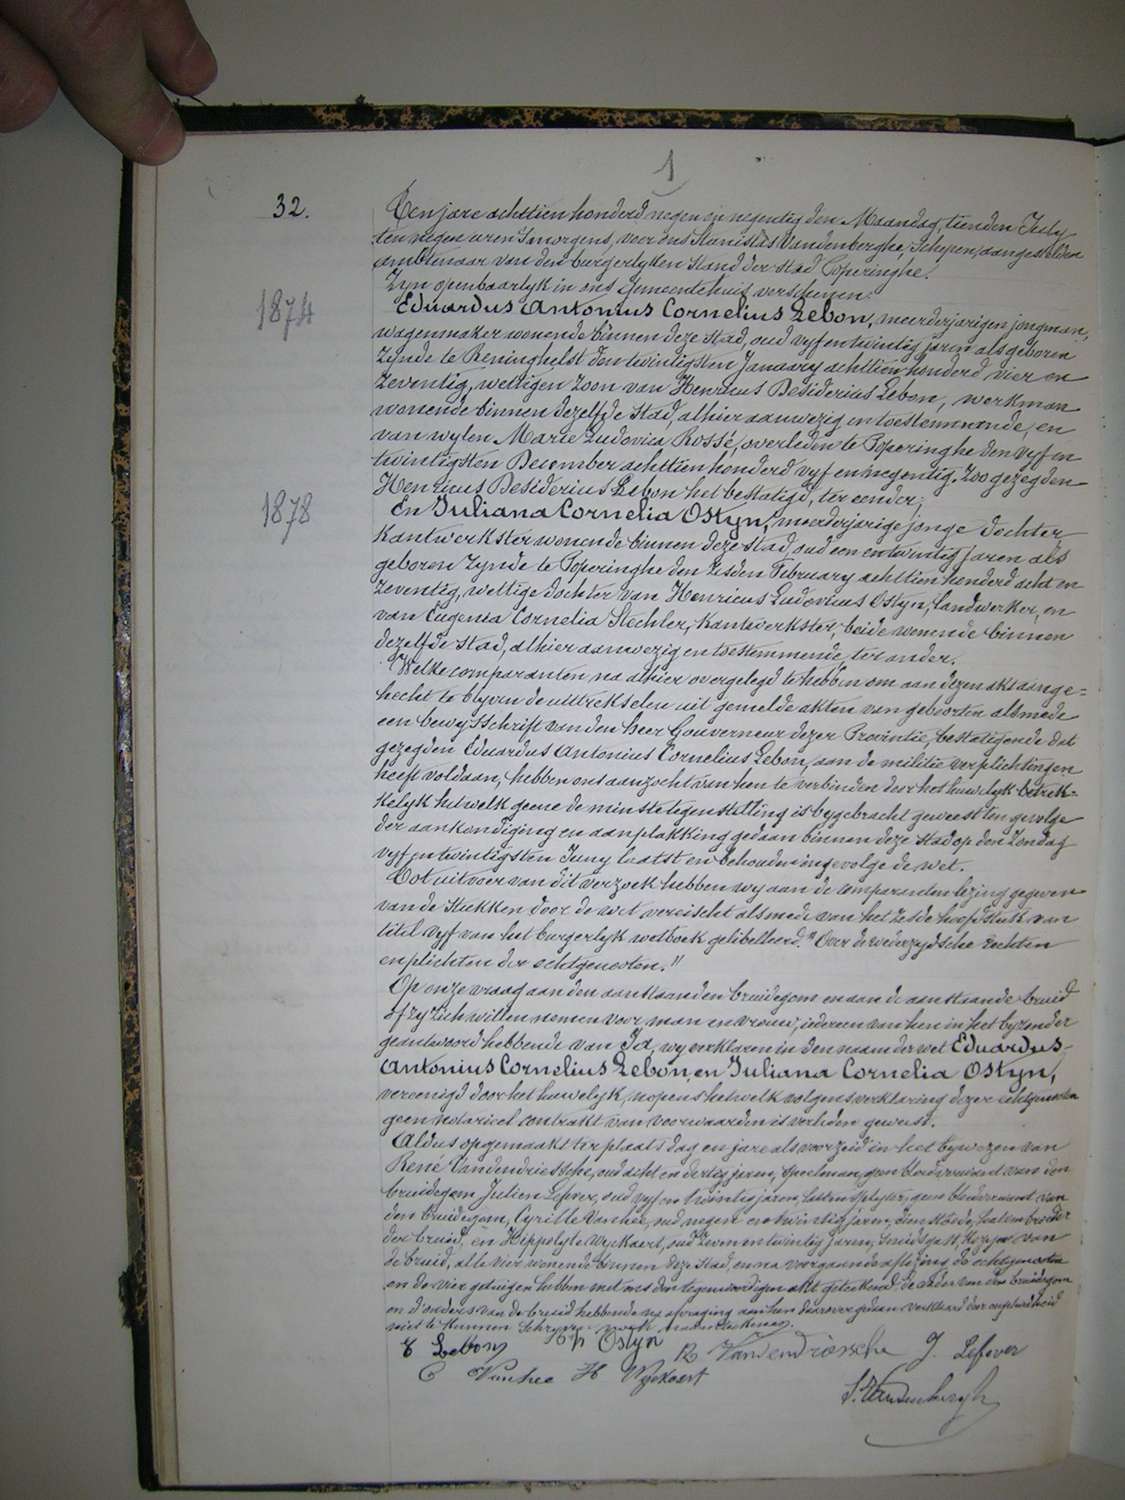 1
32.
Ten jare achttien honderd negen en negentig den Maandag tienden July
ten negen uren 's morgens, voor ons Stanislas Vandenberghe, Schepen, aangestelden
ambtenaar van den burgerlyken stand der stad Poperinghe.
Zyn openbaarlyk in ons gemeentehuis verschenen:
1874
Eduardus Antonius Cornelius Lebon, meerderjarigen jongman,
wagenmaker wonende binnen deze stad, oud vyf en twintig jaren als geboren
zynde te Reninghelst den twintigsten January achttien honderd vier en
zeventig, wettigen zoon van Henricus Desiderius Lebon, werkman
wonende binnen dezelfde stad, alhier aanwezig en toestemmende, en
van wylen Marie Ludovica Rossé, overleden te Poperinghe den vyf en
twintigsten December achttien honderd vyf en negentig. Zoo gezegden
Henricus Desiderius Lebon het bestatigd, ter eender;
1878
En Juliana Cornelia Ostyn, meerderjarige jonge dochter
kantwerkster wonende binnen deze stad, oud een en twintig jaren als
geboren zynde te Poperinghe den zesden February achttien honderd acht en
zeventig, wettige dochter van Henricus Ludovicus Ostyn, landwerker, en
van Eugenia Cornelia Stechler, kantwerkster, beide wonende binnen
dezelfde stad, alhier aanwezig en toestemmende, ter ander.
Welke comparanten na alhier overgelegd te hebben om aan dezen akt aange=
hecht te blyven de uittrekselen uit gemelde akten van geboorten alsmede
een bewysschrift van den heer Gouverneur dezer Provintie, bestatigende dat
gezegden Eduardus Antonius Cornelius Lebon, aan de militie verplichtingen
heeft voldaan, hebben ons aanzocht van hen te verbinden door het huwelyk betrek=
kelyk hetwelk geene de minste tegenstelling is bygebracht geweest ten gevolge
der aankondiging en aanplakking gedaan binnen deze stad op den Zondag
vyf en twintigsten Juny laatst en behouden ingevolge de wet.
Tot uitvoer van dit verzoek hebben wy aan de comparanten lezing gegeven
van de stukken door de wet vereischt alsmede van het zesde hoofdstuk van
titel vyf van het burgerlyk wetboek gelibelleerd "Over de wederzydsche rechten
en plichten der echtgenooten."
Op onze vraag aan den aanstaanden bruidegom en aan de aanstaande bruid
of zy zich willen nemen voor man en vrouw, iedereen van hen in het byzonder
geantwoord hebbende van Ja, wy verklaren in den naam der wet Eduardus
Antonius Cornelius Lebon, en Juliana Cornelia Ostyn,
vereenigd door het huwelyk, nopens hetwelk volgens verklaring dezer echtgenooten
geen notarieel contrakt van voorwaarden is verleden geweest.
Aldus opgemaakt ter plaats dag en jare als voorzeid in het bywezen van
René Vandendriessche, oud acht en dertig jaren, speelman, geen bloedverwant van den
bruidegom Julien Lefever, oud vyf en twintig jaren, geen bloedverwant van
den bruidegom, Cyrille Vanhee, oud negen en twintig jaren,
der bruid, en Hippolyte Wyckaert, oud zeven en twintig jaren, van
de bruid, alle vier wonende binnen deze stad, en na voorgaande aflezing de echtgenooten
en de vier getuigen hebben met ons den tegenwoordigen akt geteekend. De vader van den bruidegom
en d'ouders van de bruid hebbende na afvraging aan hen daarover gedaan verklaard der ongeleerdheid
niet te kunnen schryven noch naamteekenen.
E Lebon Ostyn R Vandendriessche J. Lefever
C Vanhee H Wyckaert
S. Vandenberghe